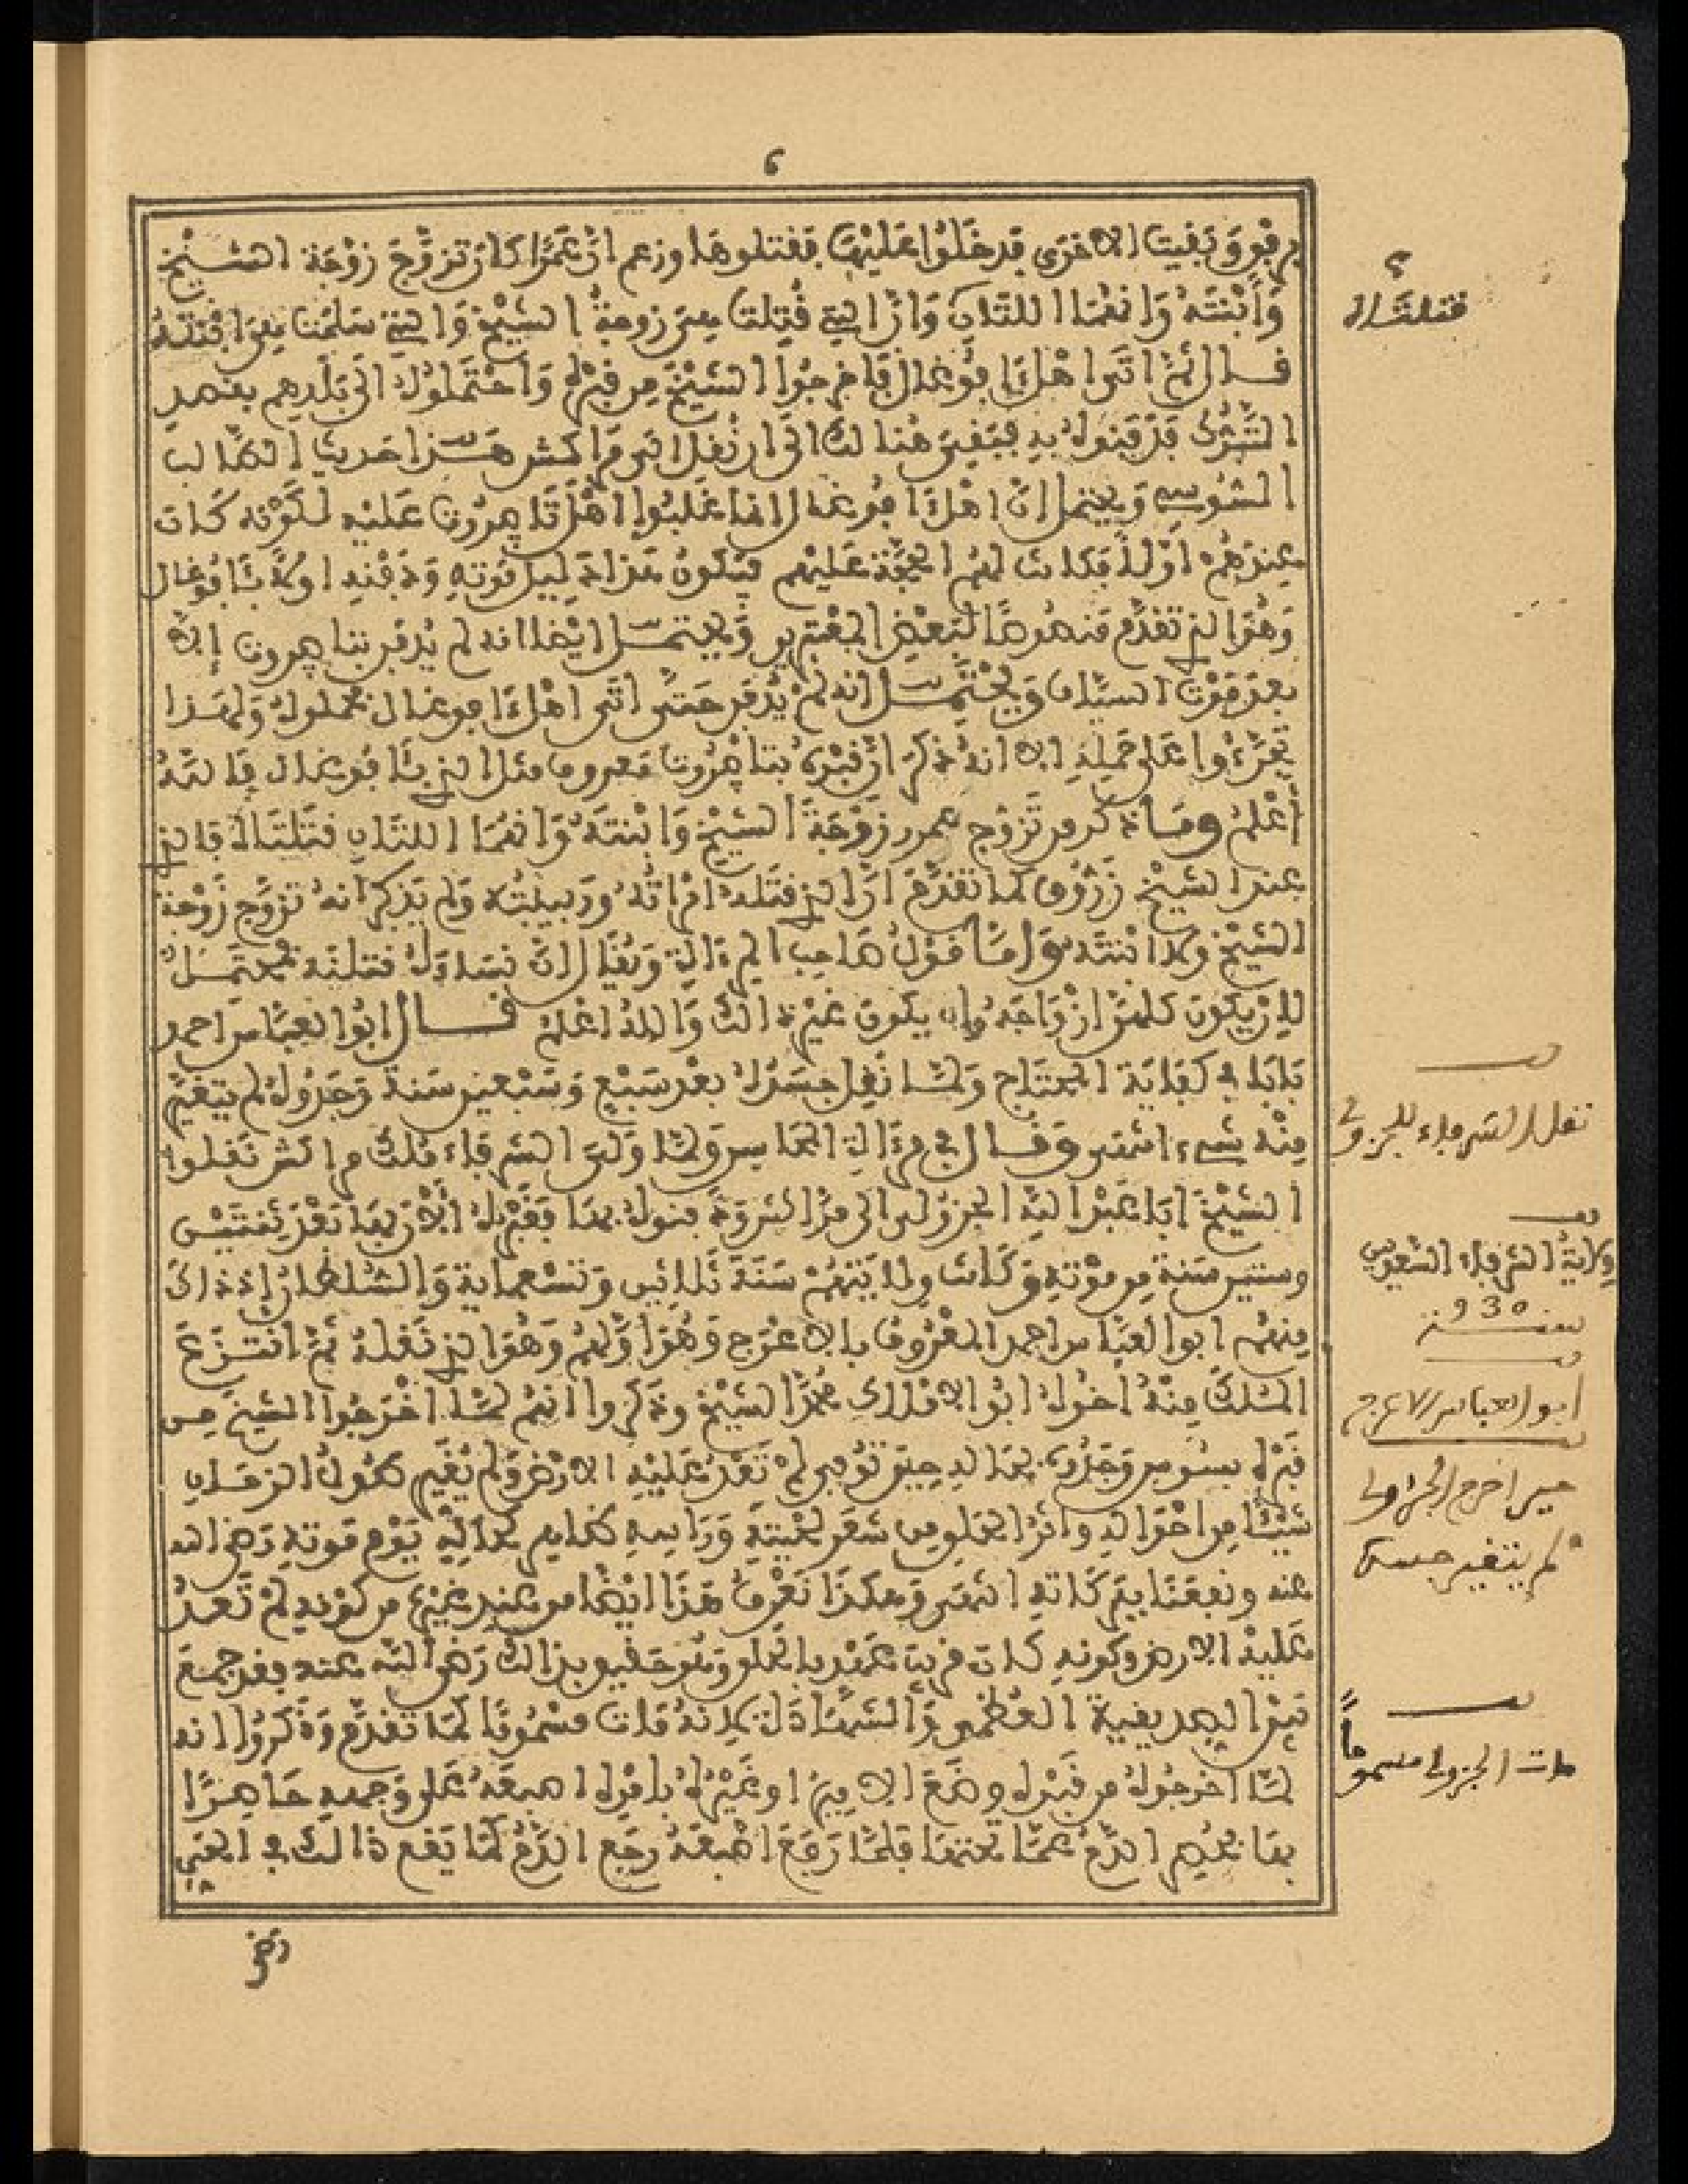 6
برفق وبقيت الاخرى فدخلوا عليها فقتلوها وزعم ان عمرا كان تزوج زوجة الشيخ
وابنته وانهما اللتان وان التي قتلت هي زوجة الشيخ والتي سلمت هي ابنته
قال ثم اتى اهل افوغال فاخرجوا الشيخ من قبره واحتملوه الى بلدهم بقصد
التبرك فدفنوه به فبقي هنالك الى ان نقل الى مراكش هذا حديث الطالب
السوسي ويحتمل ان اهل افوغال انما غلبوا اهل تاصروت عليه لكونه كان
عندهم اولا فكانت لهم الحجة عليهم فيكون هذا دليل موته ودفنه اولا بافوغال
وهو الذي تقدم منصوصا لبعض المغتربين ويحتمل ايضا انه لم يدفن بتاصروت إلا
بعد موت السياف ويحتمل انه لم يدفن حتى اتى اهل افوغال فحملوه ولهذا
تجرءوا على حمله الا انه ذكر ان قبره بتاصروت معروف مثل الذي بافوغال فالله
أعلم وما ذكر من تزوج عمرو زوجة الشيخ وابنته وانهما اللتان قتلتاه فالذي
عند الشيخ زروق كما تقدم ان الذي قتله امراته وربيبته ولم يذكر انه تزوج زوجة
الشيخ ولا ابنته واما قول صاحب المرءاة ويقال ان نساءه قتلنه فمحتمل
لان يكون كلهن ازواجه وان يكون غير ذالك والله اعلم قال ابو العباس احمد
بابا في كفاية المحتاج ولما نقل جسده بعد سبع وسبعين سنة وجدوه لم يتغير
منه شيء انتهى وقال في مرءاة المحاسن ولما ولي الشرفاء ملك مراكش نقلوا
الشيخ ابا عبد الله الجزولي الى مراكش ودفنوه بها فقبره الان بها بعد ثنتين
وستين سنة من موته وكانت ولايتهم سنة ثلاثين وتسعماية والسلطان اذ ذاك
منهم ابو العباس احمد المعروف بالاعرج وهو اولهم وهو الذي نقله ثم انتزع
الملك منه اخوه ابو الاملاك محمد الشيخ وذكروا انهم لما اخرجوا الشيخ من
قبره بسوس وجدوه بحاله حين توفي لم تعد عليه الارض ولم يغير طول الزمان
شيئا من احواله واثر الحلق من شعر لحيته وراسه كحاله يوم موته رضي الله
عنه ونفعنا ببركاته انتهى وهكذا نعرف هذا ايضا من عند غيره من كونه لم تعد
عليه الارض وكونه كان قريب عهد بالحلق وتوفي بذالك رضي الله عنه وقد جمع
بين الصديقية العظمى والشهادة لانه مات مسموما كما تقدم وذكروا انه
لما اخرجوه من قبره وضع الامير او غيره بامره اصبعه على وجهه حاصرا
بها فحصر الدم عما تحتها فلما رفع اصبعه رجع الدم كما يقع ذالك في الحي
رضي
؟
قتلتاه
نقل الشرفاء للجزولي
ولاية الشرفاء السعديين
سنة 930
ابو العباس الاعرج
حين اخرج الجزولي
لم يتغير جسده
مات الجزولي مسموماً